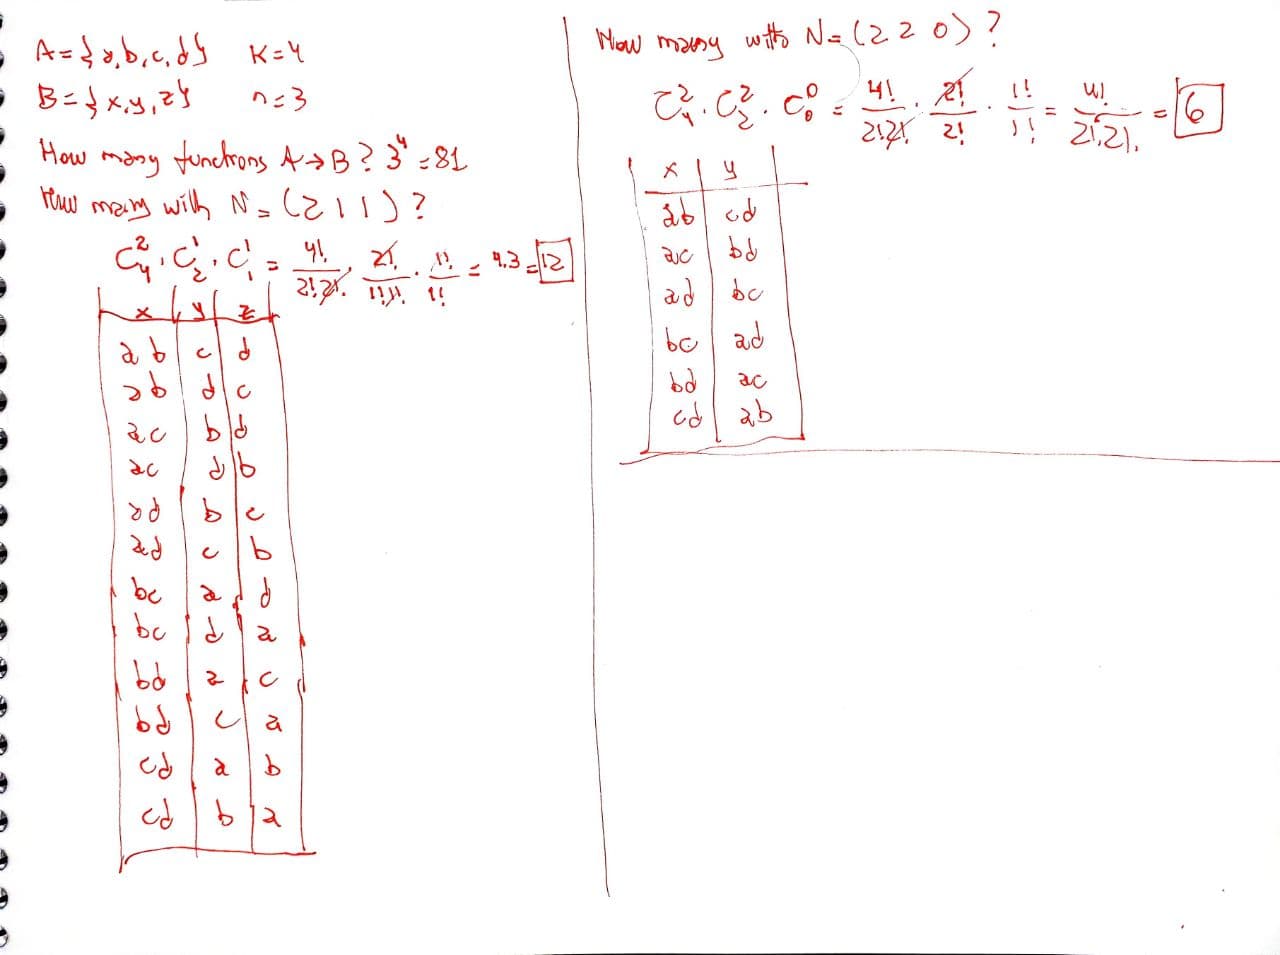 A={a,b,c,d} K=4
B={x,y,z} n=3
How many functions A→B? 3⁴=81
How many with N=(2 1 1)?
C₄². C₂¹. C₁¹ = 4!/2!2! . 2!/1!1! . 1!/1! = 4.3 = 12
x y z
ab c d
ab d c
ac b d
ac d b
ad b c
ad c b
bc a d
bc d a
bd a c
bd c a
cd a b
cd b a
How many with N=(2 2 0)?
C₄². C₂². C₀⁰ = 4!/2!2! . 2!/2! . 1!/1! = 4!/2!2! = 6
x y
ab cd
ac bd
ad bc
bc ad
bd ac
cd ab